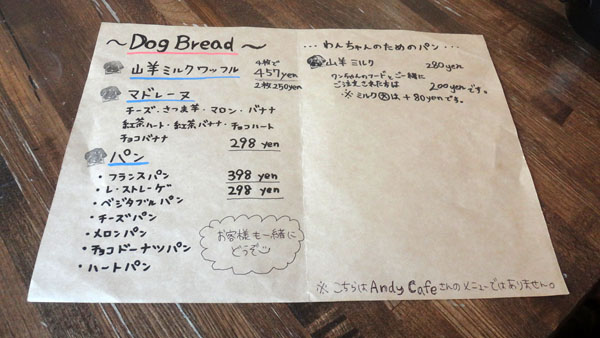 ～Dog Bread～
山羊ミルクワッフル 4枚で 457yen
2枚250yen
マドレーヌ
チーズ・さつま芋・マロン・バナナ
紅茶ハート・紅茶バナナ・チョコハート
チョコバナナ 298 yen
パン
・フランスパン 398 yen
・レ・ストレーゲ 298 yen
・ベジタブルパン
・チーズパン
・メロンパン
・チョコドーナツパン
・ハートパン
お客様も一緒に
どうぞ
・・・わんちゃんのためのパン・・・
山羊ミルク 280yen
ワンちゃんのフードとご一緒に
ご注文された方は 200yenです。
※ミルク大は+80yenです。
※こちらはAndy Cafeさんのメニューではありません。